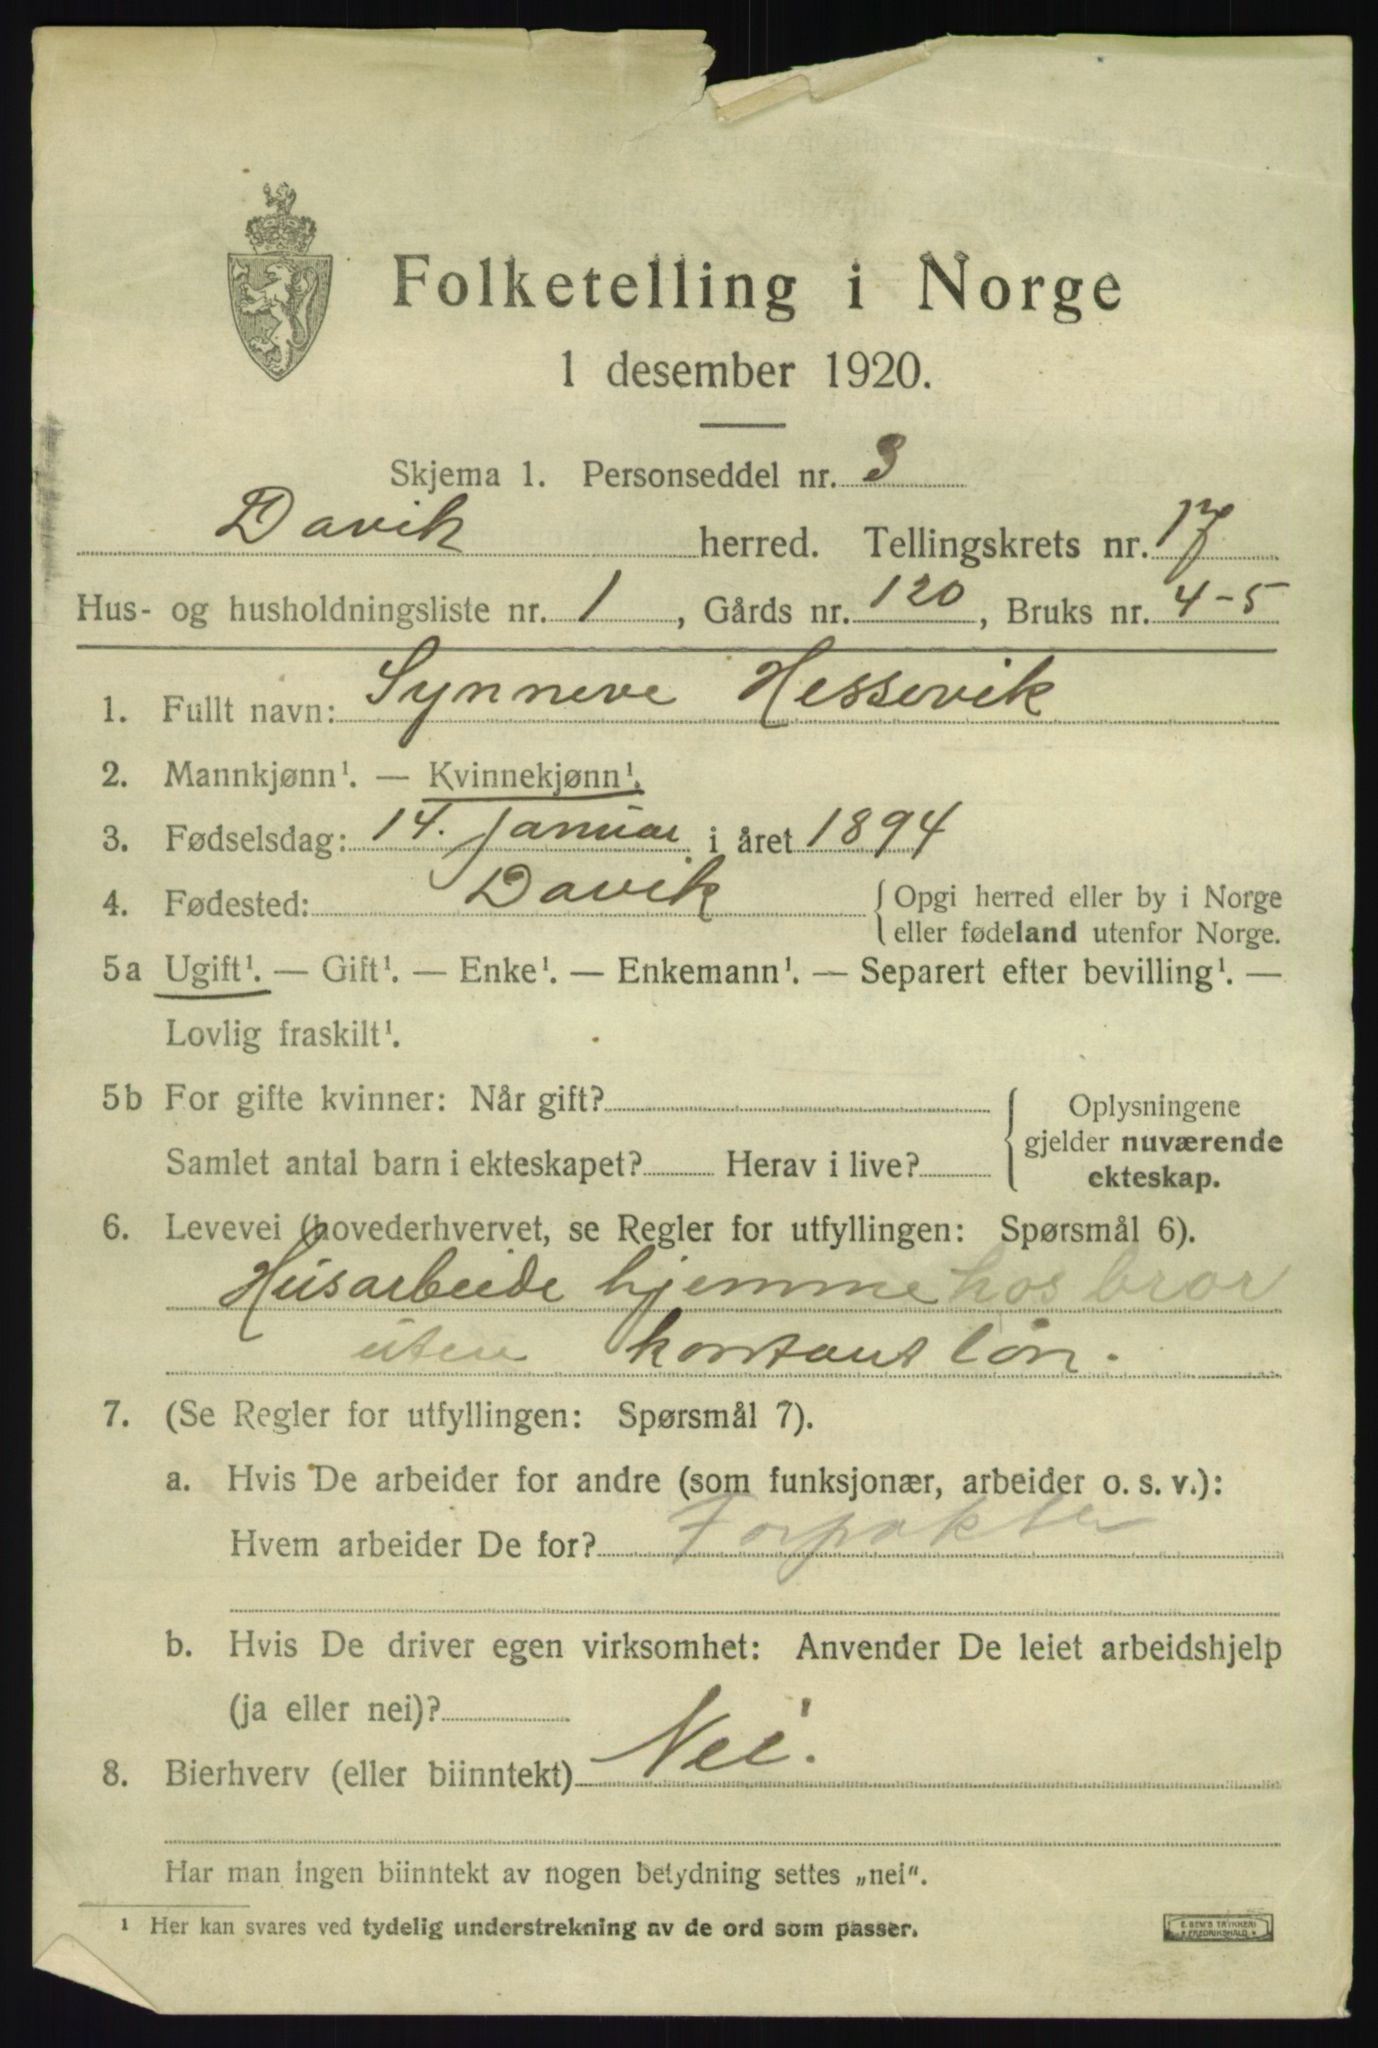 Folketelling i Norge
1 desember 1920.
Skjema 1. Personseddel nr. 3
Davik herred. Tellingskrets nr. 17
Hus- og husholdningsliste nr. 1, Gårds nr. 120, Bruks nr. 4-5
1. Fullt navn: Synneve Hessevik
2. Mannkjønn¹. — Kvinnekjønn¹.
3. Fødselsdag: 14. januar i året 1894
4. Fødested: Davik { Opgi herred eller by i Norge
eller fødeland utenfor Norge.
5a Ugift¹. — Gift¹. — Enke¹. — Enkemann¹. — Separert efter bevilling¹. —
Lovlig fraskilt¹.
5b For gifte kvinner: Når gift?
Samlet antal barn i ekteskapet? Herav i live?
{ Oplysningene
gjelder nuværende
ekteskap.
6. Levevei (hovederhvervet, se Regler for utfyllingen: Spørsmål 6).
Husarbeide hjemme hos bror
uten kontant løn.
7. (Se Regler for utfyllingen: Spørsmål 7).
a. Hvis De arbeider for andre (som funksjonær, arbeider o. s. v.):
Hvem arbeider De for? Forpakter
b. Hvis De driver egen virksomhet: Anvender De leiet arbeidshjelp
(ja eller nei)?
8. Bierhverv (eller biinntekt) Nei.
Har man ingen biinntekt av nogen betydning settes „nei“.
¹ Her kan svares ved tydelig understrekning av de ord som passer.
E. SEM'S TRYKKERI
FREDRIKSHALD